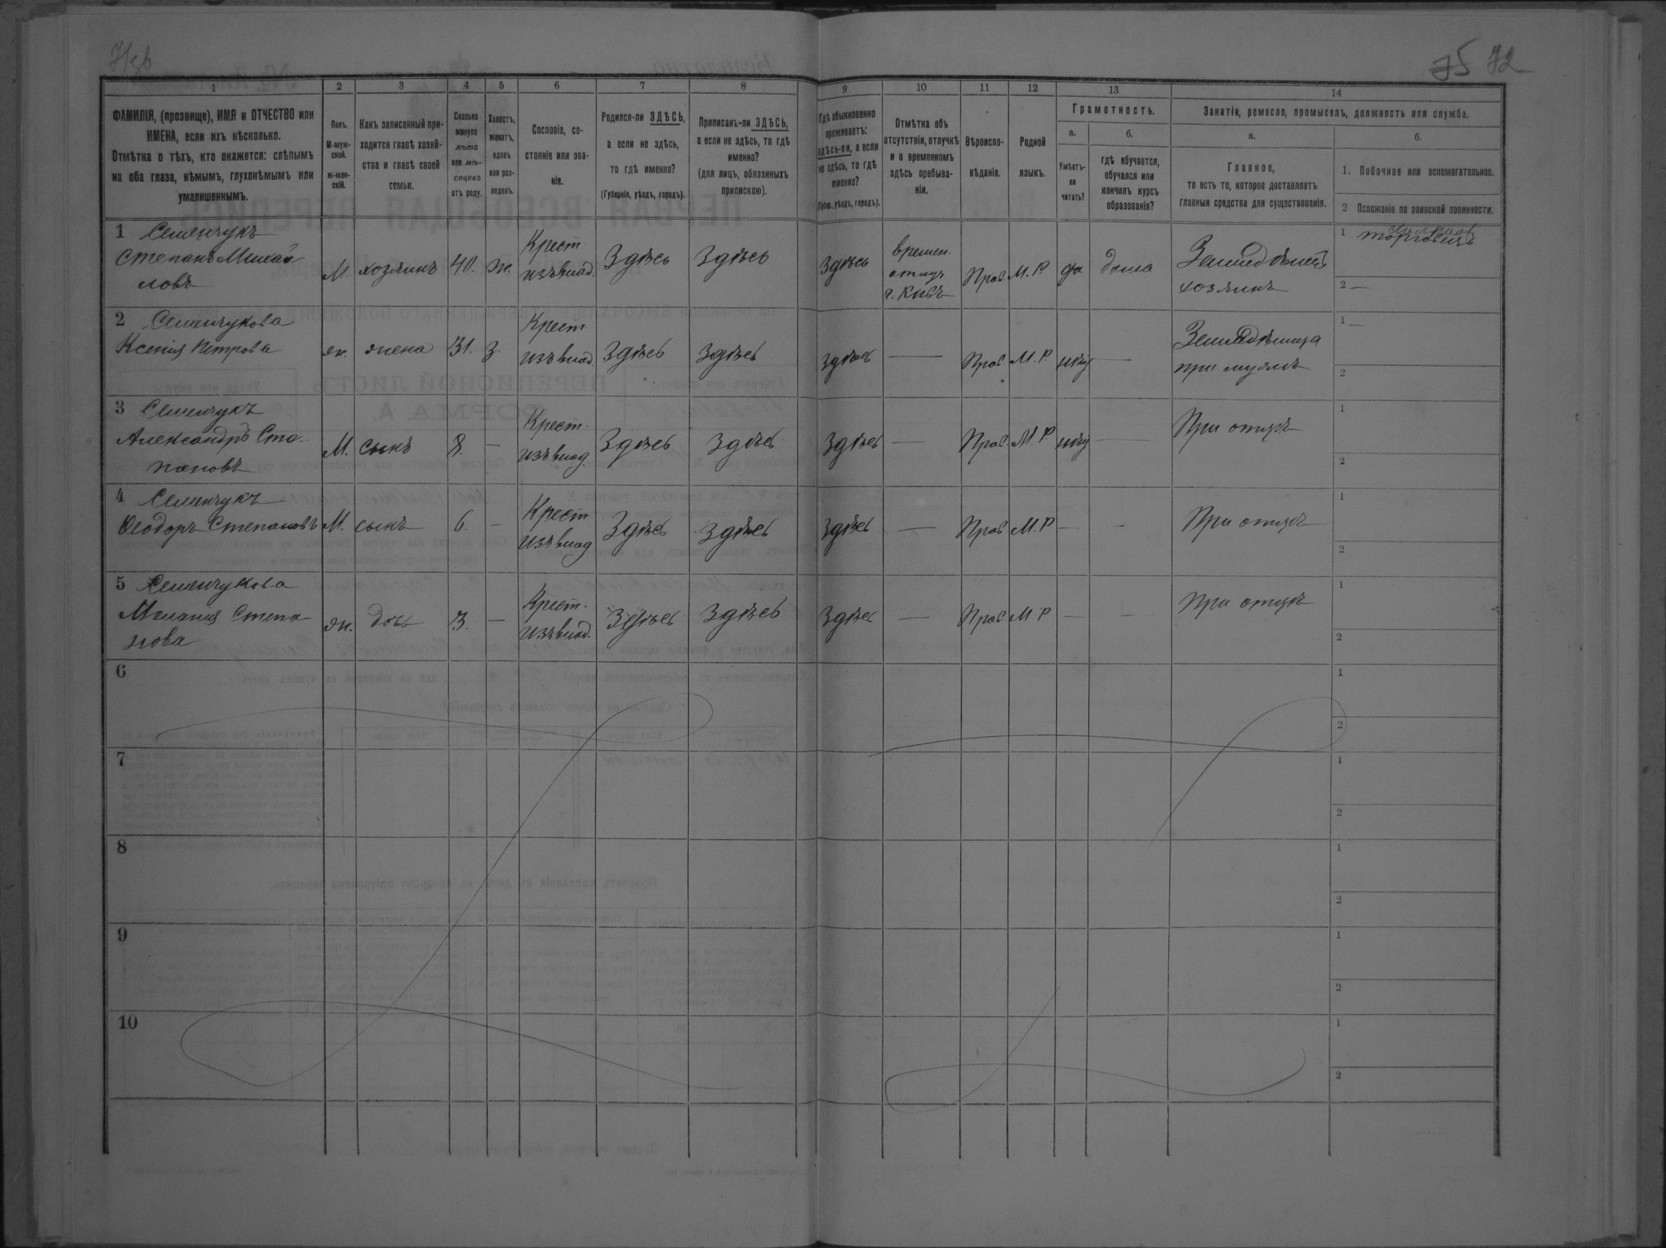 71 зв
75 72
1
2
3
4
5
6
7
8
9
10
11
12
13
14
ФАМИЛІЯ, (прозвище), ИМЯ и ОТЧЕСТВО или
ИМЕНА, если ихъ нѣсколько.
Отмѣтка о тѣхъ, кто окажется: слѣпымъ
на оба глаза, нѣмымъ, глухонѣмымъ или
умалишеннымъ.
Полъ.
М-муж-
ской.
ж-жен-
скій.
Какъ записанный при-
ходится главѣ хозяй-
ства и главѣ своей
семьи.
Сколько
минуло
лѣтъ
или мѣ-
сяцевъ
отъ роду.
Холостъ,
женатъ,
вдовъ
или раз-
веденъ.
Сословіе, со-
стояніе или зва-
ніе.
Родился-ли ЗДѢСЬ,
а если не здѣсь,
то гдѣ именно?
(Губернія, уѣздъ, городъ).
Приписанъ-ли ЗДѢСЬ,
а если не здѣсь, то гдѣ
именно?
(для лицъ, обязанныхъ
припискою).
Гдѣ обыкновенно
проживаетъ:
здѣсь-ли, а если
не здѣсь, то гдѣ
именно?
(Губер., уѣздъ, городъ).
Отмѣтка объ
отсутствіи, отлучкѣ
и о временномъ
здѣсь пребыва-
ніи.
Вѣроиспо-
вѣданіе.
Родной
языкъ.
Грамотность.
а.
б.
Умѣетъ-
ли
читать?
гдѣ обучается,
обучался или
кончилъ курсъ
образованія?
Занятіе, ремесло, промыселъ, должность или служба.
а.
б.
Главное,
то есть то, которое доставляетъ
главныя средства для существованія.
1. Побочное или вспомогательное.
2 Положеніе по воинской повинности.
1 Семенчукъ
Степанъ Михай
ловъ
М хозяинъ 40. ж. Крест
изъ влад. Здѣсь Здѣсь Здѣсь времен.
отлуч
г. Кіевъ Прав М.Р. да дома Земледѣлецъ
хозяинъ
1 торговецъ
2 —
2 Семенчукова
Ксенія Петрова ж. жена 31. з. Крест
изъ влад. Здѣсь Здѣсь Здѣсь — Прав М.Р нѣту — Земледѣлица
при мужѣ
1 —
2
3 Семенчукъ
Александръ Сте-
пановъ
М. сынъ 8. — Крест.
изъ влад. Здѣсь Здѣсь Здѣсь — Прав М.Р нѣту — При отцѣ
1
2
4 Семенчукъ
Ѳеодоръ Степановъ М. сынъ 6. — Крест
изъ влад Здѣсь Здѣсь Здѣсь — Прав М.Р — — При отцѣ
1
2
5 Семенчукова
Меланія Степа
нова
ж. дочь 3. — Крест.
изъ влад. Здѣсь Здѣсь Здѣсь — Прав М.Р — — При отцѣ
1
2
6
1
2
7
1
2
8
1
2
9
1
2
10
1
2